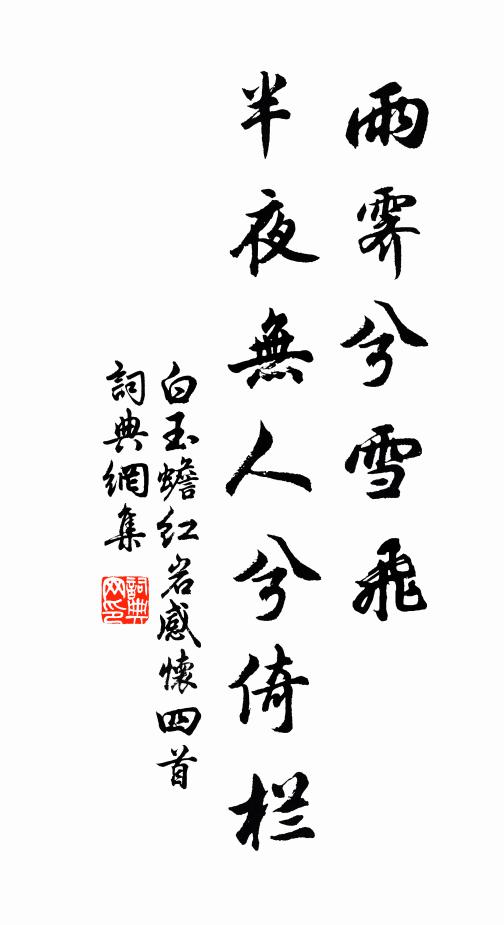 雨霽兮雪飛
半夜無人兮倚栏
白玉蟾红岩感懷四首
詞典網集
詞典網印